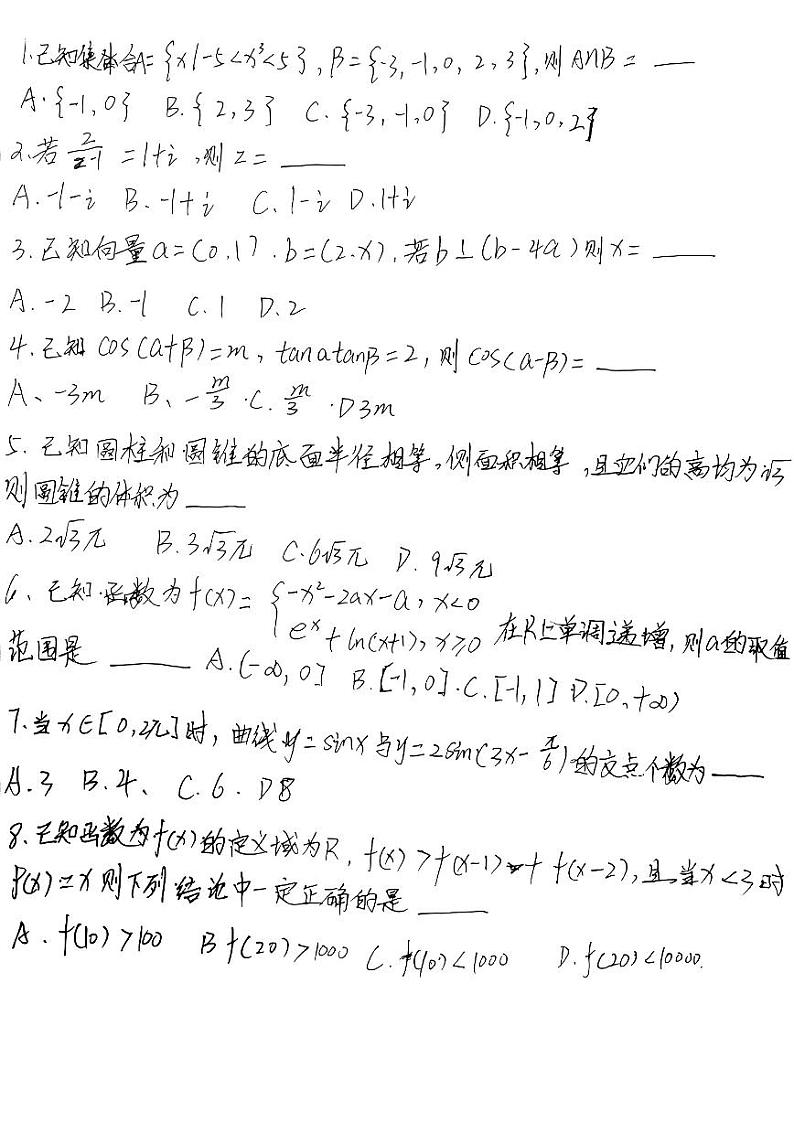 1.已知集合A={x|-5<x³<5},B={-3,-1,0,2,3},则A∩B=___
A.{-1,0} B.{2,3} C.{-3,-1,0} D.{-1,0,2}
2.若 2/(z-1) =1+i,则z=____
A.-1-i B.-1+i C.1-i D.1+i
3.已知向量a=(0,1).b=(2.x),若b⊥(b-4a)则x=____
A.-2 B.-1 C.1 D.2
4.已知cos(α+β)=m,tanαtanβ=2,则cos(α-β)=____
A、-3m B、-m/3 .C.m/3 .D3m
5.已知圆柱和圆锥的底面半径相等,侧面积相等,且它们的高均为√3
则圆锥的体积为____
A.2√3π B.3√3π C.6√3π D.9√3π
6、已知函数为f(x)={-x²-2ax-a,x<0
e^x+ln(x+1),x≥0 在R上单调递增,则a的取值
范围是____ A.(-∞,0] B.[-1,0].C.[-1,1] D.[0,+∞)
7.当x∈[0,2π]时,曲线y=sinx与y=2sin(3x-π/6)的交点个数为___
A.3 B.4、 C.6. D8
8.已知函数为f(x)的定义域为R,f(x)>f(x-1)+f(x-2),且当x<3时
f(x)=x则下列结论中一定正确的是____
A.f(10)>100 B f(20)>1000 C.f(10)<1000 D.f(20)<10000.